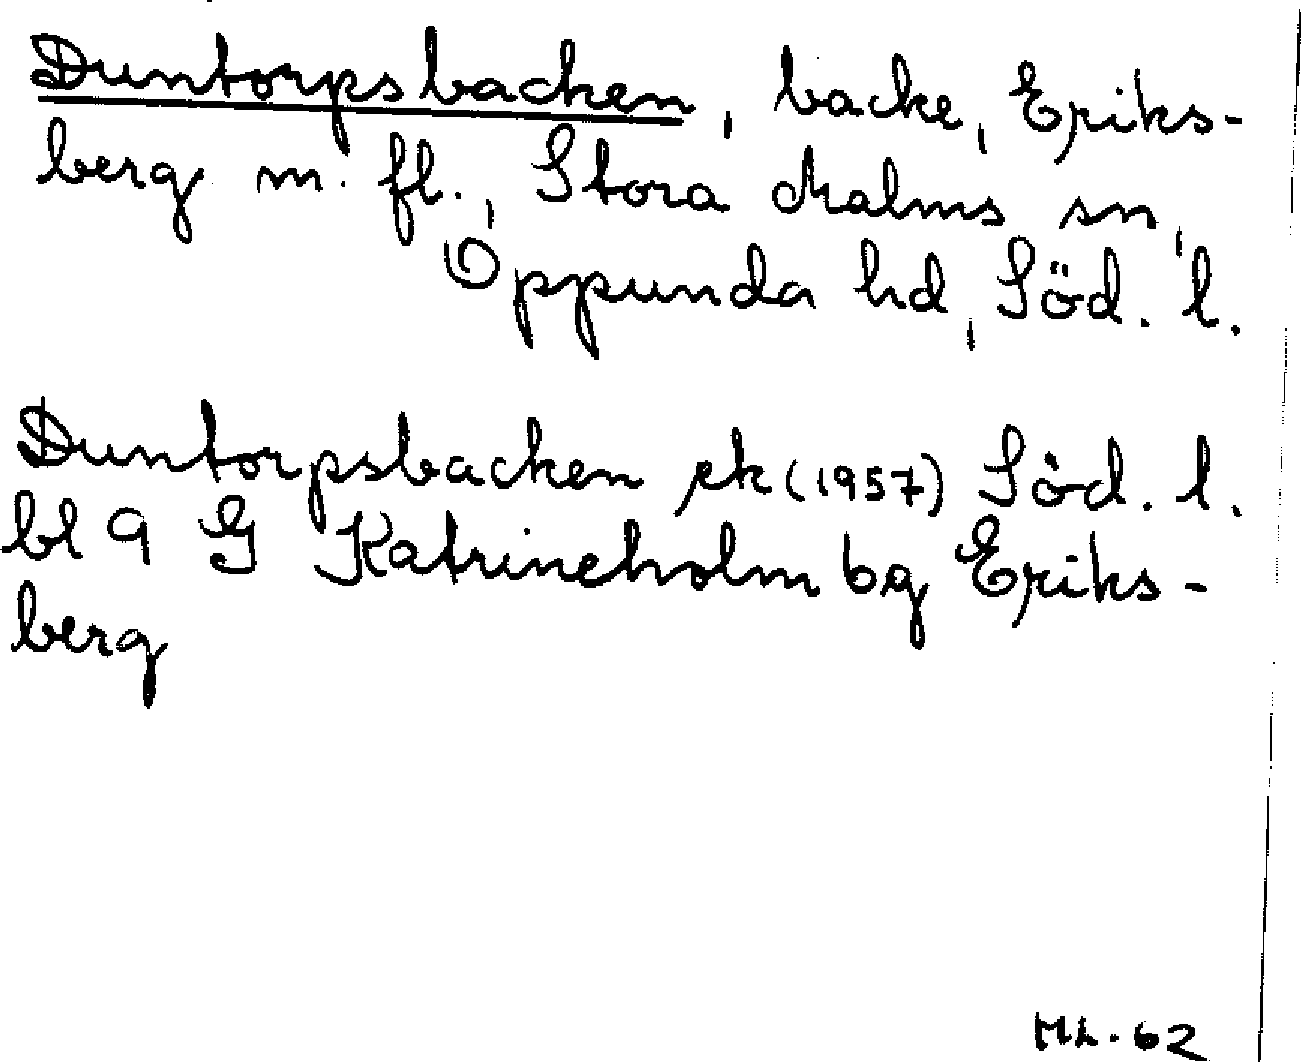 Duntorpsbacken, backe, Eriks-
berg m. fl., Stora Malms sn,
Oppunda hd, Söd. l.
Duntorpsbacken ek (1957) Söd. l.
bl 9 G Katrineholm bg Eriks-
berg
ML. 62